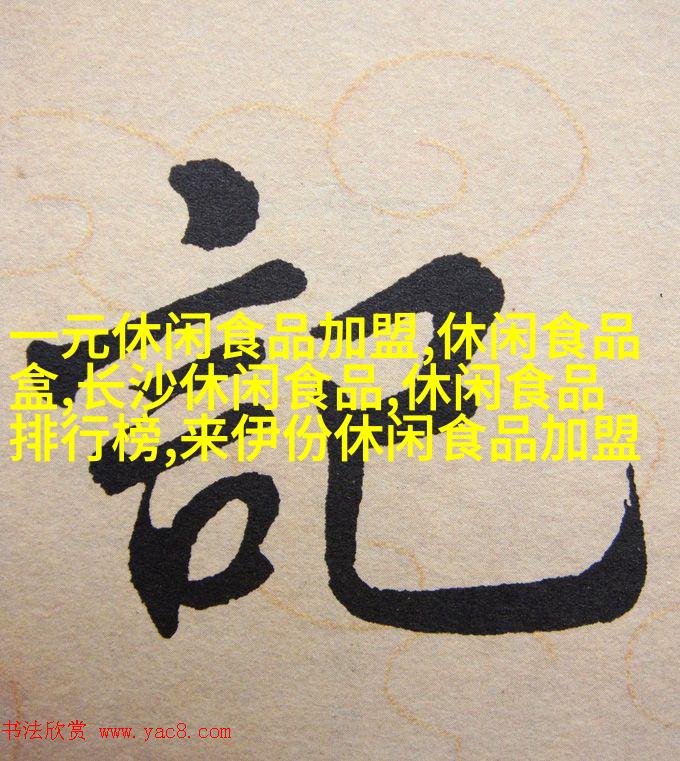 記
一元休闲食品加盟,休闲食品
盒,长沙休闲食品,休闲食品
排行榜,来伊份休闲食品加盟
书法欣赏 www.yac8.com